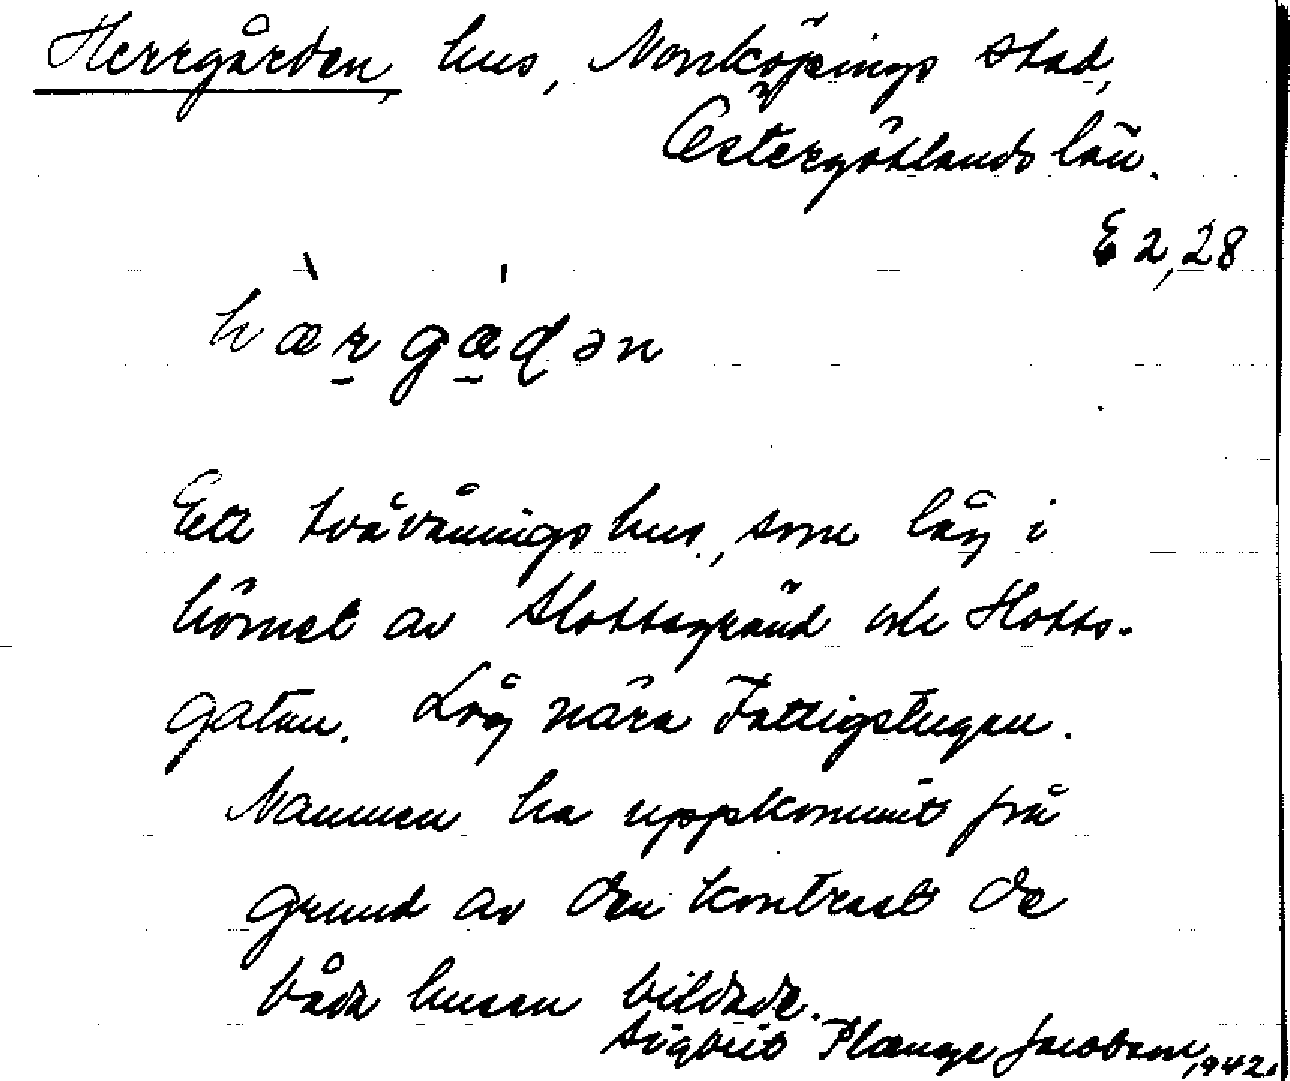 Herrgården, hus, Norrköpings stad,
Östergötlands län.
E 2,28
hæ̀rgá̱ḍən
Ett tvåvåningshus, som låg i
hörnet av Slottsgränd och Slotts-
gatan. Låg nära Fattigstugan.
Namnen ha uppkommit på
grund av den kontrast de
båda husen bildade.
Sigbrit Plænge Jacobson, 1942.